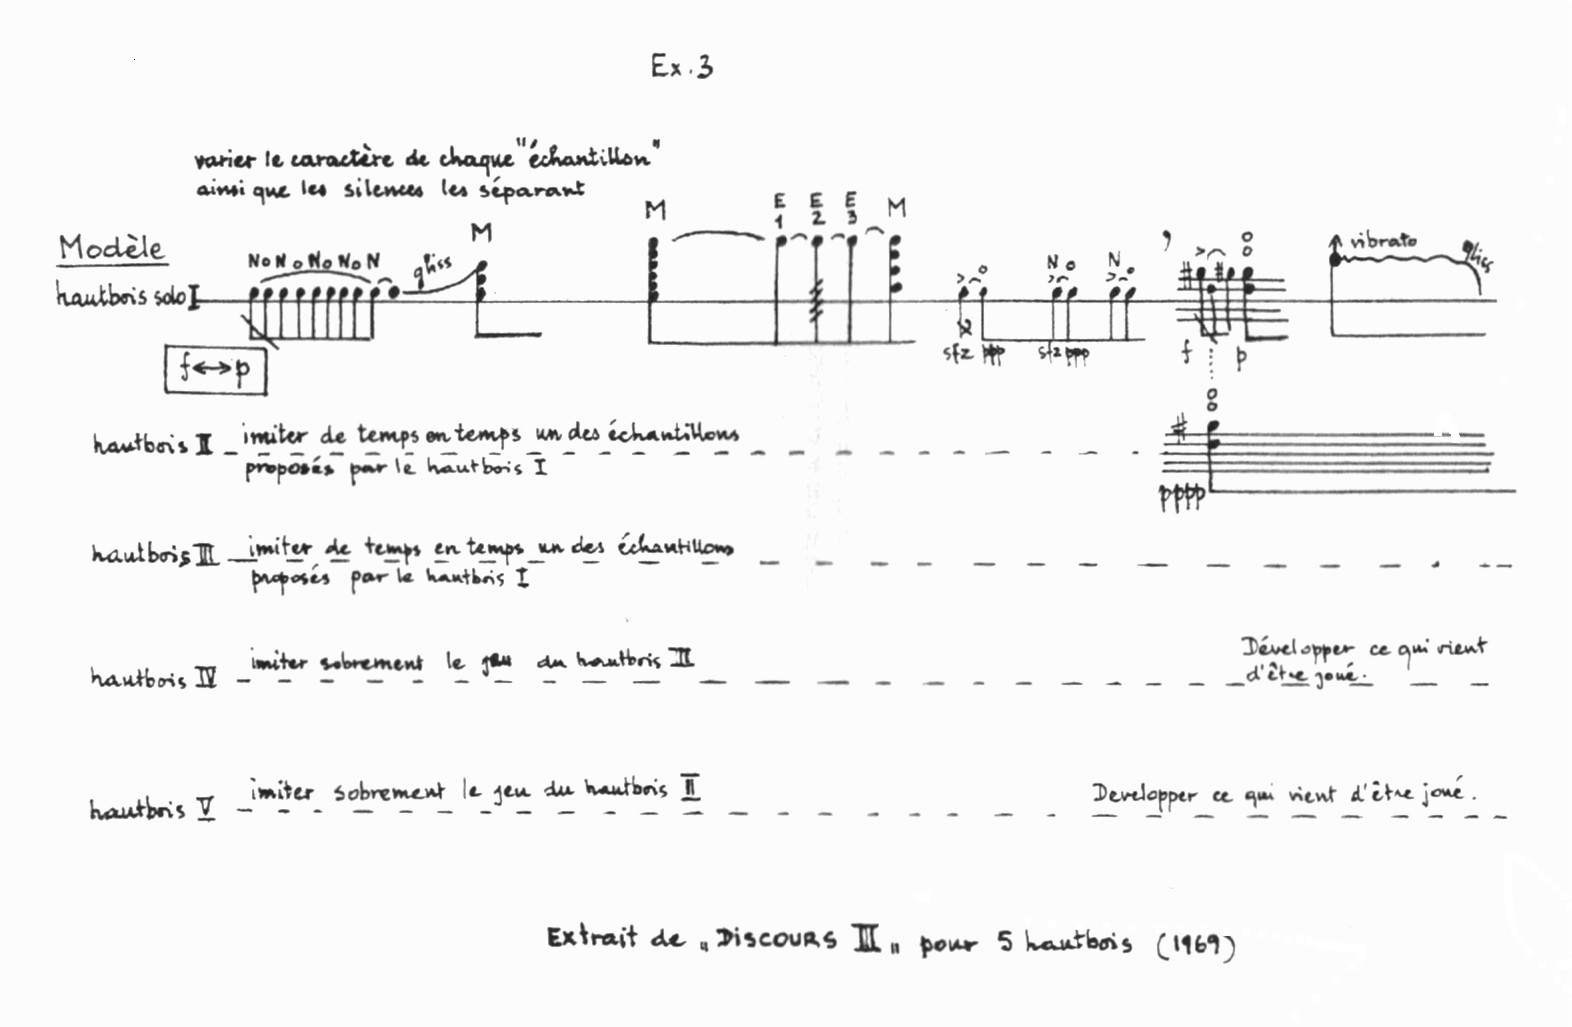 Ex. 3
varier le caractère de chaque "échantillon"
ainsi que les silences les séparant
Modèle
hautbois solo I
N o N o N o N o N
gliss
M
M
E E E
1 2 3
M
o
N o
N o
o
o
vibrato
gliss
f ↔ p
sfz ppp
sfz ppp
f p
hautbois II
imiter de temps en temps un des échantillons
proposés par le hautbois I
o
o
pppp
hautbois III
imiter de temps en temps un des échantillons
proposés par le hautbois I
hautbois IV
imiter sobrement le jeu du hautbois II
Développer ce qui vient
d'être joué.
hautbois V
imiter sobrement le jeu du hautbois II
Developper ce qui vient d'être joué.
Extrait de „DISCOURS III„ pour 5 hautbois (1969)